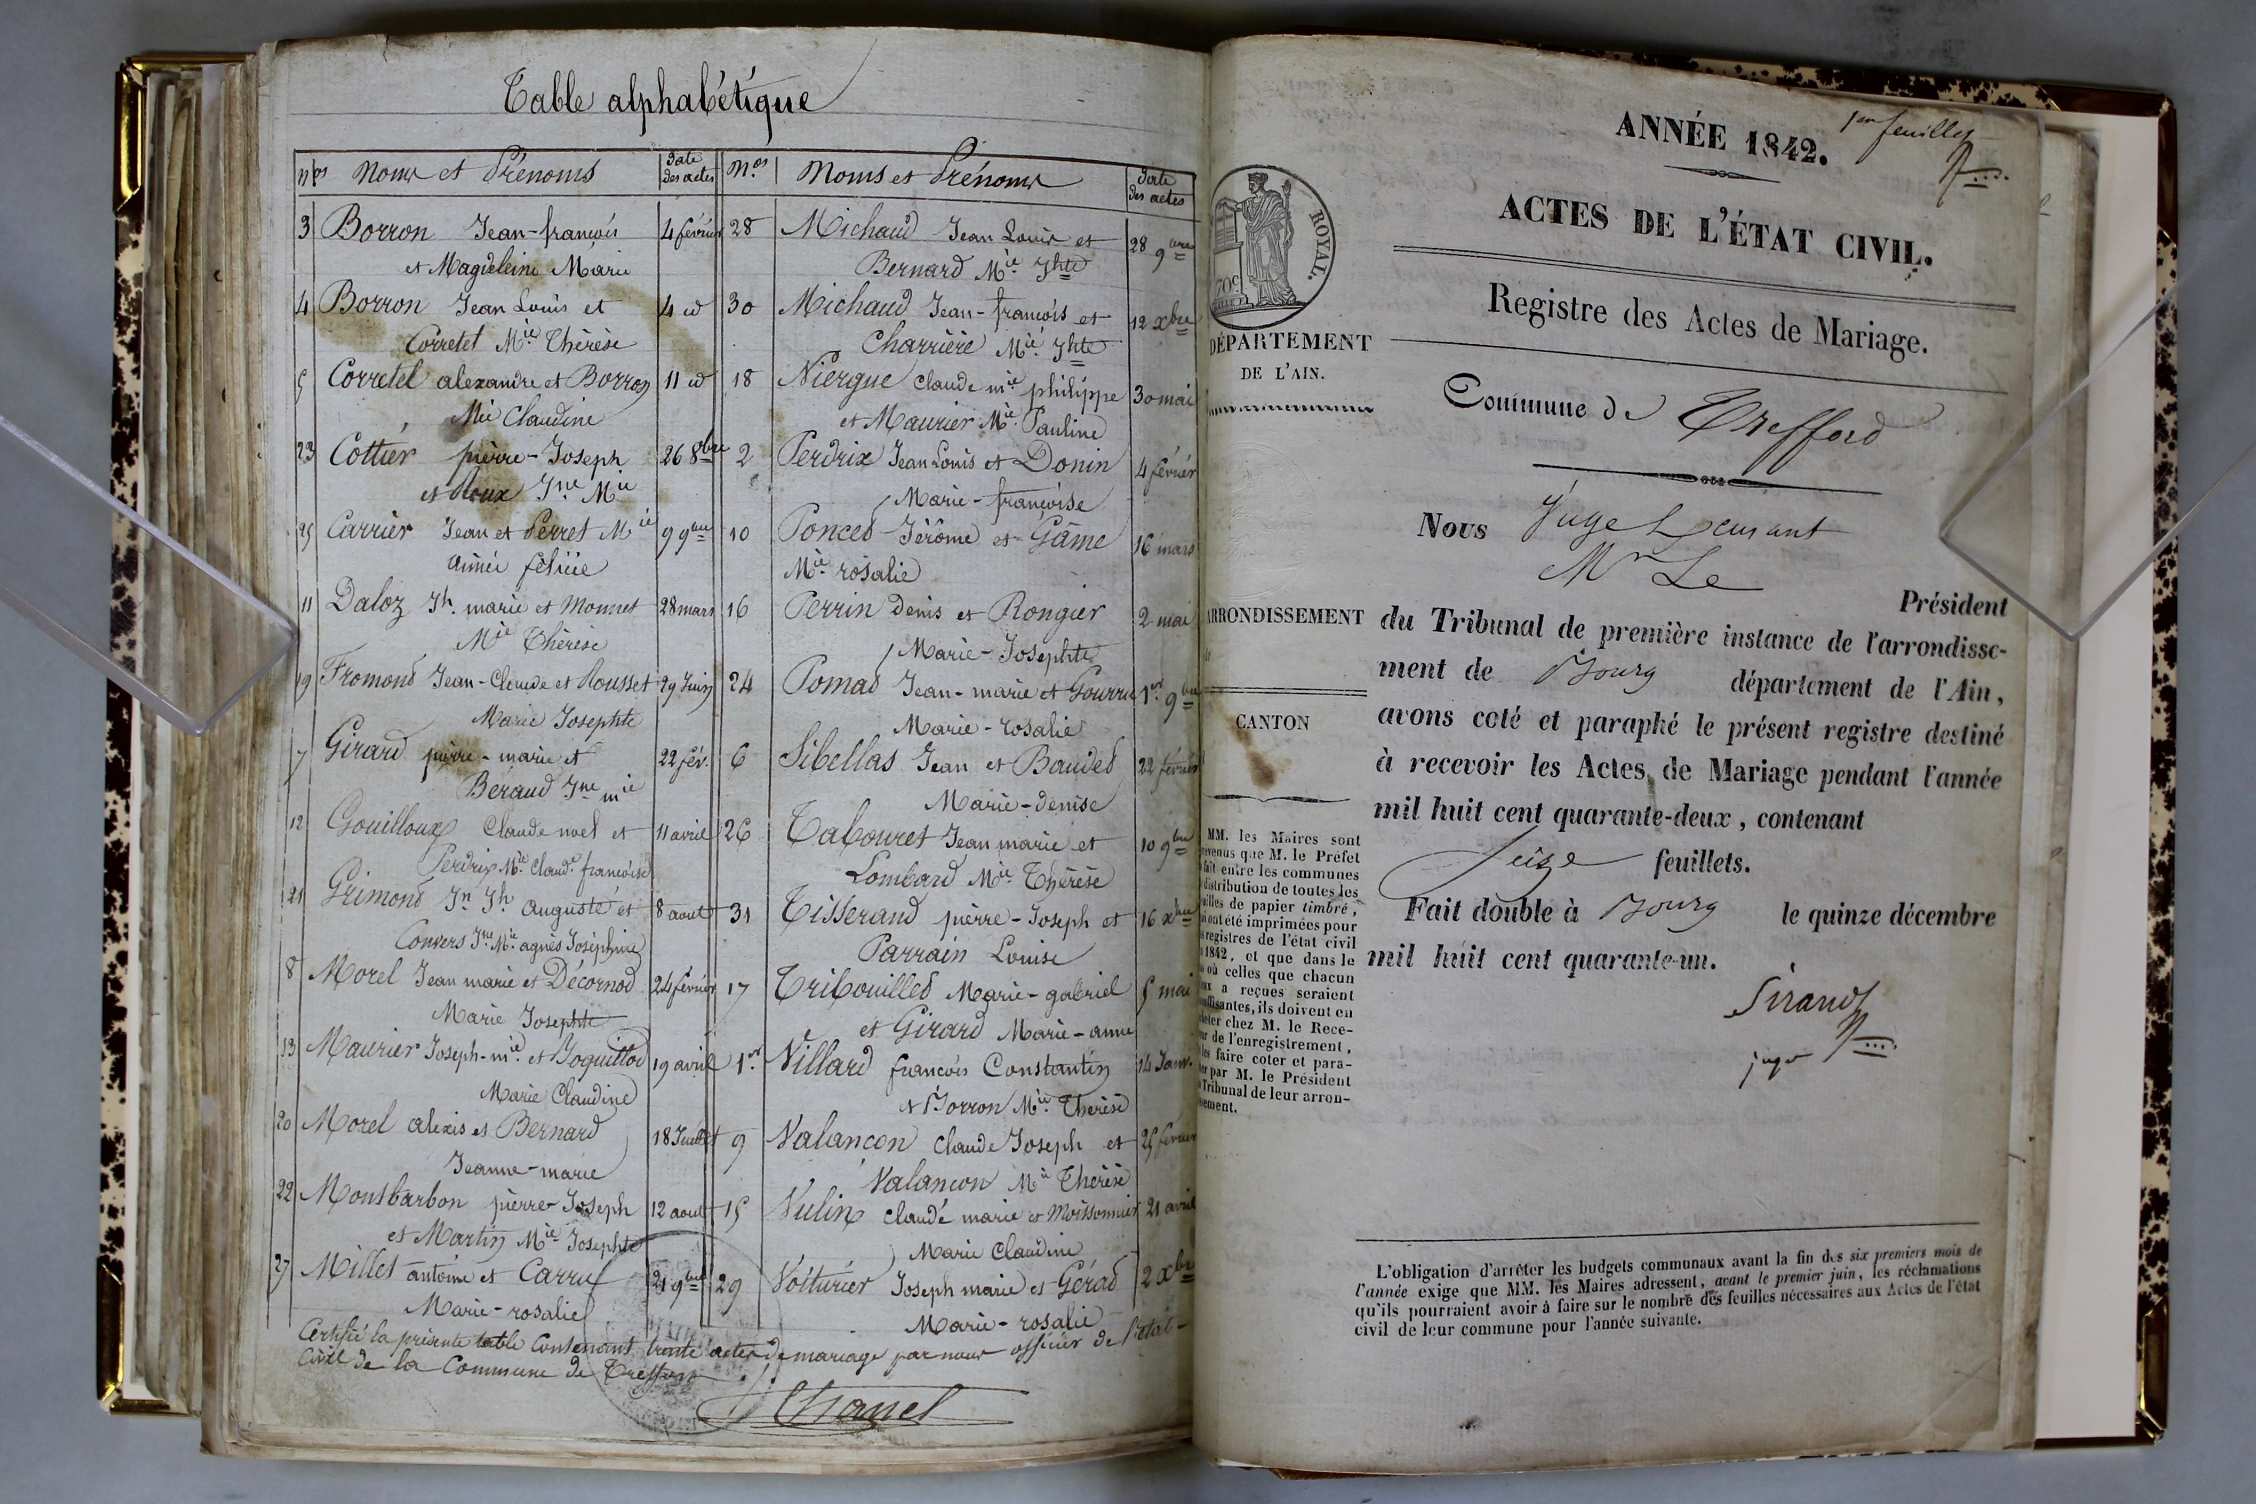 Table alphabétique
Nos Noms et Prénoms Date des actes
3 Borron Jean-françois 4 février
et Magdeleine Marie
4 Borron Jean Louis et 4 id
Corretel Mie Thérèse
5 Corretel alexandre et Borron 11 id
Mie Claudine
23 Cottier pierre-Joseph 26 8bre
et Roux Jne Mie
25 Carrier Jean et Perret Mie 9 9bre
Aimée félicie
11 Daloz Jh. marie et Monnet 28 mars
Mie Thérèse
19 Fromond Jean-Claude et Rousset 29 Juin
Marie Josephte
7 Girard pierre-marie et 22 fév.
Béraud Jne mie
12 Gouilloux Claude noel et 11 avril
Perdrix Mie Claude françoise
21 Grimond Jn Jh auguste et 8 aout
Convers Jne Mie agnès Joséphine
8 Morel Jean marie et Décornod 24 février
Marie Josephte
13 Maurier Joseph-mie et Joguillod 19 avril
Marie Claudine
20 Morel alexis et Bernard 18 Juillet
Jeanne-marie
22 Monsbarbon pierre-Joseph 12 aout
et Martin Mie Josephte
27 Millet antoine et Carru 21 9bre
Marie-rosalie
Nos Noms et Prénoms Date des actes
28 Michaud Jean Louis et 28 9bre
Bernard Mie Jhte
30 Michaud Jean-françois et 12 Xbre
Charrière Mie Jhte
18 Niergue Claude mie philippe 30 mai
et Maurier Mie Pauline
2 Perdrix Jean Louis et Donin 4 février
Marie-françoise
10 Poncet Jérôme et Gâme 16 mars
Mie rosalie
16 Perrin denis et Rongier 2 mai
Marie-Josephte
24 Pomad Jean-marie et Gourru 1er 9bre
Marie-rosalie
6 Sibellas Jean et Baudet 22 février
Marie-denise
26 Tabouret Jean marie et 10 9bre
Lombard Mie Thérèse
31 Tisserand pierre-Joseph et 16 Xbre
Parrain Louise
17 Tribouillet Marie-gabriel 5 mai
et Girard Marie-anne
1er Villard françois Constantin 14 Janv.
et Borron Mie Thérèse
9 Valancon Claude Joseph et 25 février
Valancon Mie Thérèse
15 Vulin Claude marie et Moissonnier 21 avril
Marie Claudine
29 Voiturier Joseph marie et Gérad 2 Xbre
Marie-rosalie
Certifié la présente table Contenant trente actes de mariage par nous officier de l'état-
Civil de la Commune de Treffort
Chanel
1er feuillet
ANNÉE 1842.
ACTES DE L'ÉTAT CIVIL.
Registre des Actes de Mariage.
Commune de Treffort
ROYAL.
70c
DÉPARTEMENT
DE L'AIN.
ARRONDISSEMENT
CANTON
MM. les Maires sont
prévenus que M. le Préfet
fait entre les communes
distribution de toutes les
feuilles de papier timbré,
ont été imprimées pour
registres de l'état civil
1842, et que dans le
où celles que chacun
a reçues seraient
insuffisantes, ils doivent en
acheter chez M. le Rece-
de l'enregistrement,
les faire coter et para-
par M. le Président
Tribunal de leur arron-
dissement.
Nous Juge
Mr Le
Président
du Tribunal de première instance de l'arrondisse-
ment de Bourg département de l'Ain,
avons coté et paraphé le présent registre destiné
à recevoir les Actes de Mariage pendant l'année
mil huit cent quarante-deux, contenant
seize feuillets.
Fait double à Bourg le quinze décembre
mil huit cent quarante-un.
Sirand
juge
L'obligation d'arrêter les budgets communaux avant la fin des six premiers mois de
l'année exige que MM. les Maires adressent, avant le premier juin, les réclamations
qu'ils pourraient avoir à faire sur le nombre des feuilles nécessaires aux Actes de l'état
civil de leur commune pour l'année suivante.